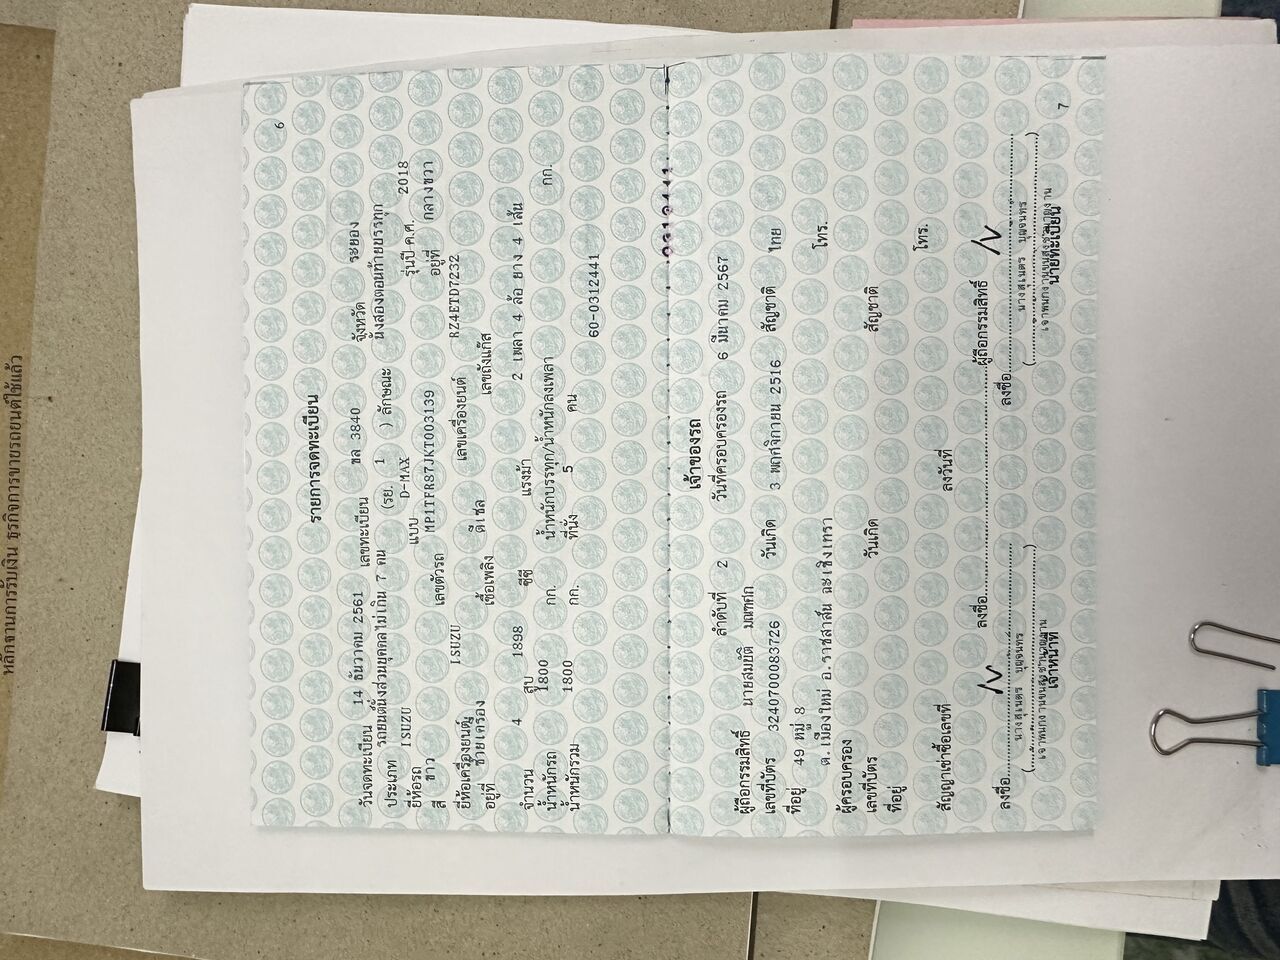 หลักฐานการรับเงิน ธุรกิจการขายรถยนต์ใช้แล้ว
6
รายการจดทะเบียน
วันจดทะเบียน 14 ธันวาคม 2561 เลขทะเบียน ขล 3840 จังหวัด ระยอง
ประเภท รถยนต์นั่งส่วนบุคคลไม่เกิน 7 คน (รย. 1 ) ลักษณะ นั่งสองตอนท้ายบรรทุก
ยี่ห้อรถ ISUZU แบบ D-MAX รุ่นปี ค.ศ. 2018
สี ขาว เลขตัวรถ MP1TFR87JKT003139 อยู่ที่ กลางขวา
ยี่ห้อเครื่องยนต์ ISUZU เลขเครื่องยนต์ RZ4ETD7232
อยู่ที่ ซ้ายเครื่อง เชื้อเพลิง ดีเซล เลขถังแก๊ส
จำนวน 4 สูบ 1898 ซีซี แรงม้า 2 เพลา 4 ล้อ ยาง 4 เส้น
น้ำหนักรถ 1800 กก. น้ำหนักบรรทุก/น้ำหนักลงเพลา กก.
น้ำหนักรวม 1800 กก. ที่นั่ง 5 คน
60-0312441
เจ้าของรถ
ลำดับที่ 2 วันที่ครอบครองรถ 6 มีนาคม 2567
ผู้ถือกรรมสิทธิ์ นายสมยิติ มณฑศิก
เลขที่บัตร 3240700083726 วันเกิด 3 พฤศจิกายน 2516 สัญชาติ ไทย
ที่อยู่ 49 หมู่ 8
ต.เมืองใหม่ อ.ราชสาส์น ฉะเชิงเทรา โทร.
ผู้ครอบครอง
เลขที่บัตร วันเกิด สัญชาติ
ที่อยู่
โทร.
สัญญาเช่าซื้อเลขที่ ลงวันที่
ลงชื่อ ผู้ถือกรรมสิทธิ์
ลงชื่อ ลงชื่อ
นางสุเนตร บุญจันทร์ นางสุเนตร บุญจันทร์
เจ้าพนักงานขนส่งชำนาญงาน เจ้าพนักงานขนส่งชำนาญงาน
เจ้าหน้าที่ นายทะเบียน
7